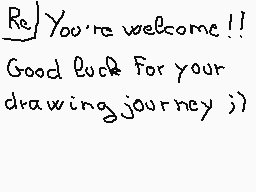 Re You're welcome!!
Good luck For your
drawing journey ;)